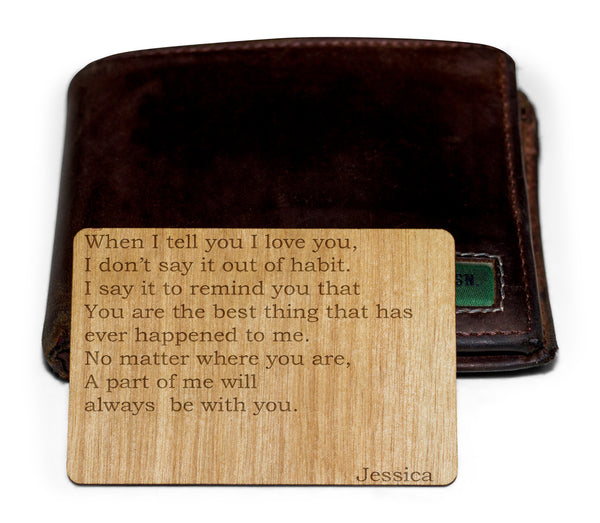 When I tell you I love you,
I don't say it out of habit.
I say it to remind you that
You are the best thing that has
ever happened to me.
No matter where you are,
A part of me will
always  be with you.
Jessica